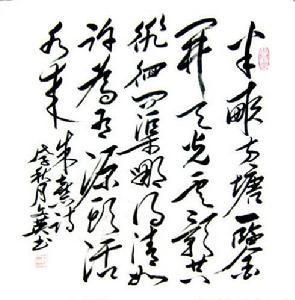 半畝方塘一鑒
開天光雲影共
徘徊問渠那得清如
許為有源頭活
水來
朱熹詩
秋月書